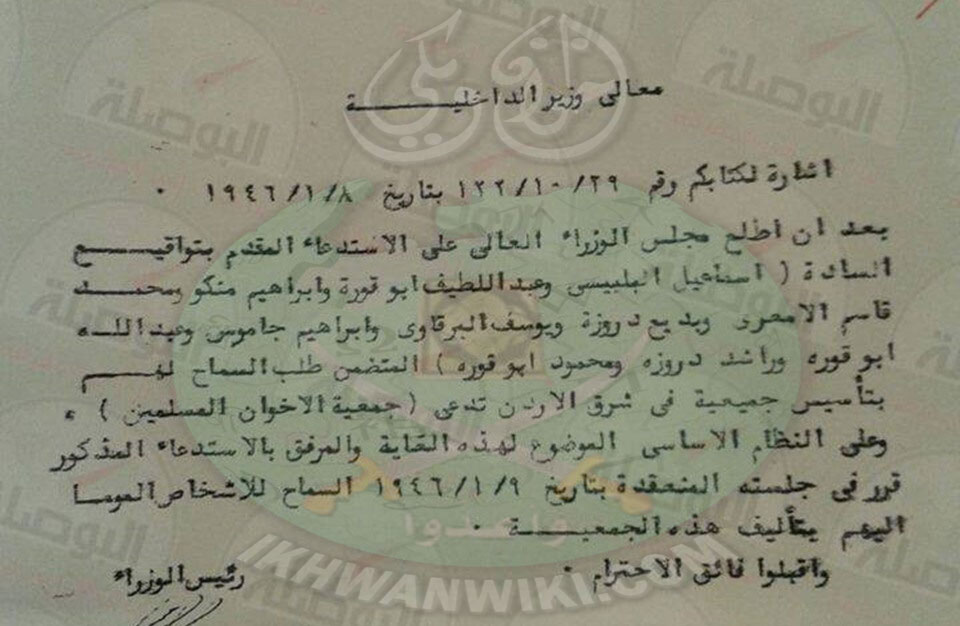 معالى وزير الداخليـــــة
اشارة لكتابكم رقم ١٢٢/١٠/٢٩ بتاريخ ١٩٤٦/١/٨ ٠
بعد ان اطلع مجلس الوزراء العالى على الاستدعاء المقدم بتواقيـــع
السادة ( اسماعيل البلبيسى وعبد اللطيف ابو قورة وابراهيم منكو ومحمـــد
قاسم الامعرى وبديع دروزة ويوسف البرقاوى وابراهيم جاموس وعبد اللـــه
ابو قوره وراشد دروزه ومحمود ابو قوره ) المتضمن طلب السماح لهـــم
بتأسيس جمعيعية فى شرق الاردن تدعى ( جمعية الاخوان المسلمين ) ،
وعلى النظام الاساسى الموضوع لهذه الغاية والمرفق بالاستدعاء المذكور
قرر فى جلسته المنعقدة بتاريخ ١٩٤٦/١/٩ السماح للاشخاص الموما
اليهم بتأليف هذه الجمعيـــــة ٠
واقبلوا فائق الاحترام ٠
رئيس الوزراء
البوصلة
إخوان ويكي
وأعدوا
IKHWANWIKI.COM